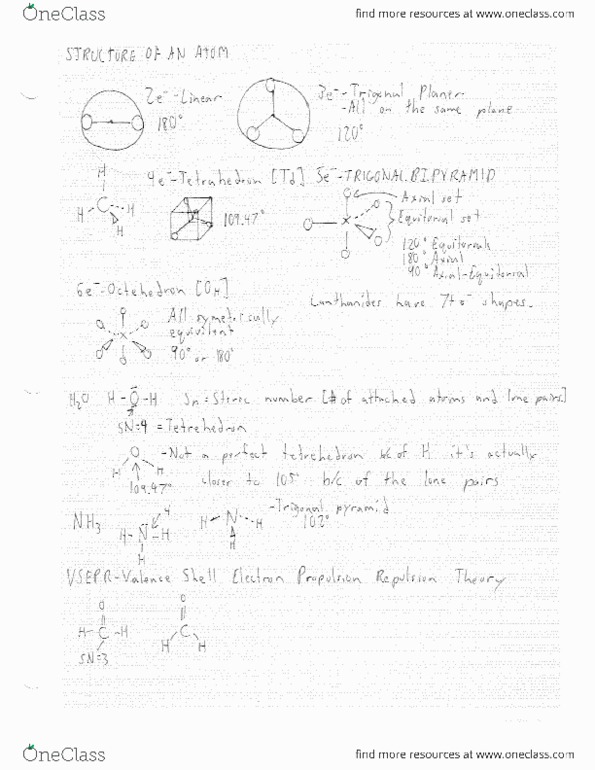 OneClass
find more resources at www.oneclass.com
STRUCTURE OF AN ATOM
2e⁻-Linear
180°
3e⁻-Trigonal Planer
-All on the same plane
120°
4e⁻-Tetrahedron [Td]
H
C H
H H
109.47°
5e⁻-TRIGONAL BIPYRAMID
Axial set
Equitorial set
120° Equitorials
180° Axial
90° Axial-Equitorial
6e⁻-Octehedron [OH]
All symeterically
equivalent
90° or 180°
Lanthanides have shapes.
H₂O H-O-H Sn=Steric number [# of attached atoms and lone pairs]
SN=4 = Tetrehedron
O
H H
109.47°
-Not a perfect tetrehedron b/c of H it's actually
closer to 105° b/c of the lone pairs
NH₃
4
H-N-H
H
H N H
H
-Trigonal pyramid
102°
VSEPR-Valence Shell Electron Propulsion Repulsion Theory
O
H-C-H
SN=3
O
C
H H
OneClass
find more resources at www.oneclass.com